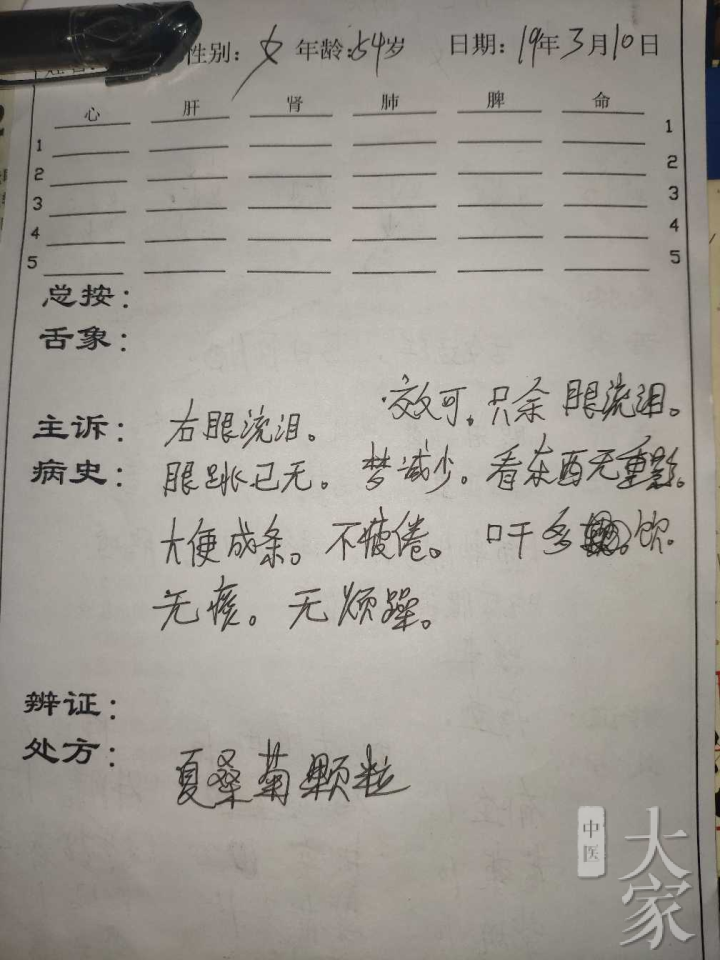 性别：女 年龄：54岁 日期：19年3月10日
心 肝 肾 肺 脾 命
1 1
2 2
3 3
4 4
5 5
总按：
舌象：
效可。只余眼流泪。
主诉：右眼流泪。
病史：眼跳已无。梦减少。看东西无重影。
大便成条。不疲倦。口干多饮。
无痰。无烦躁。
辨证：
处方：
夏桑菊颗粒
中医
大家